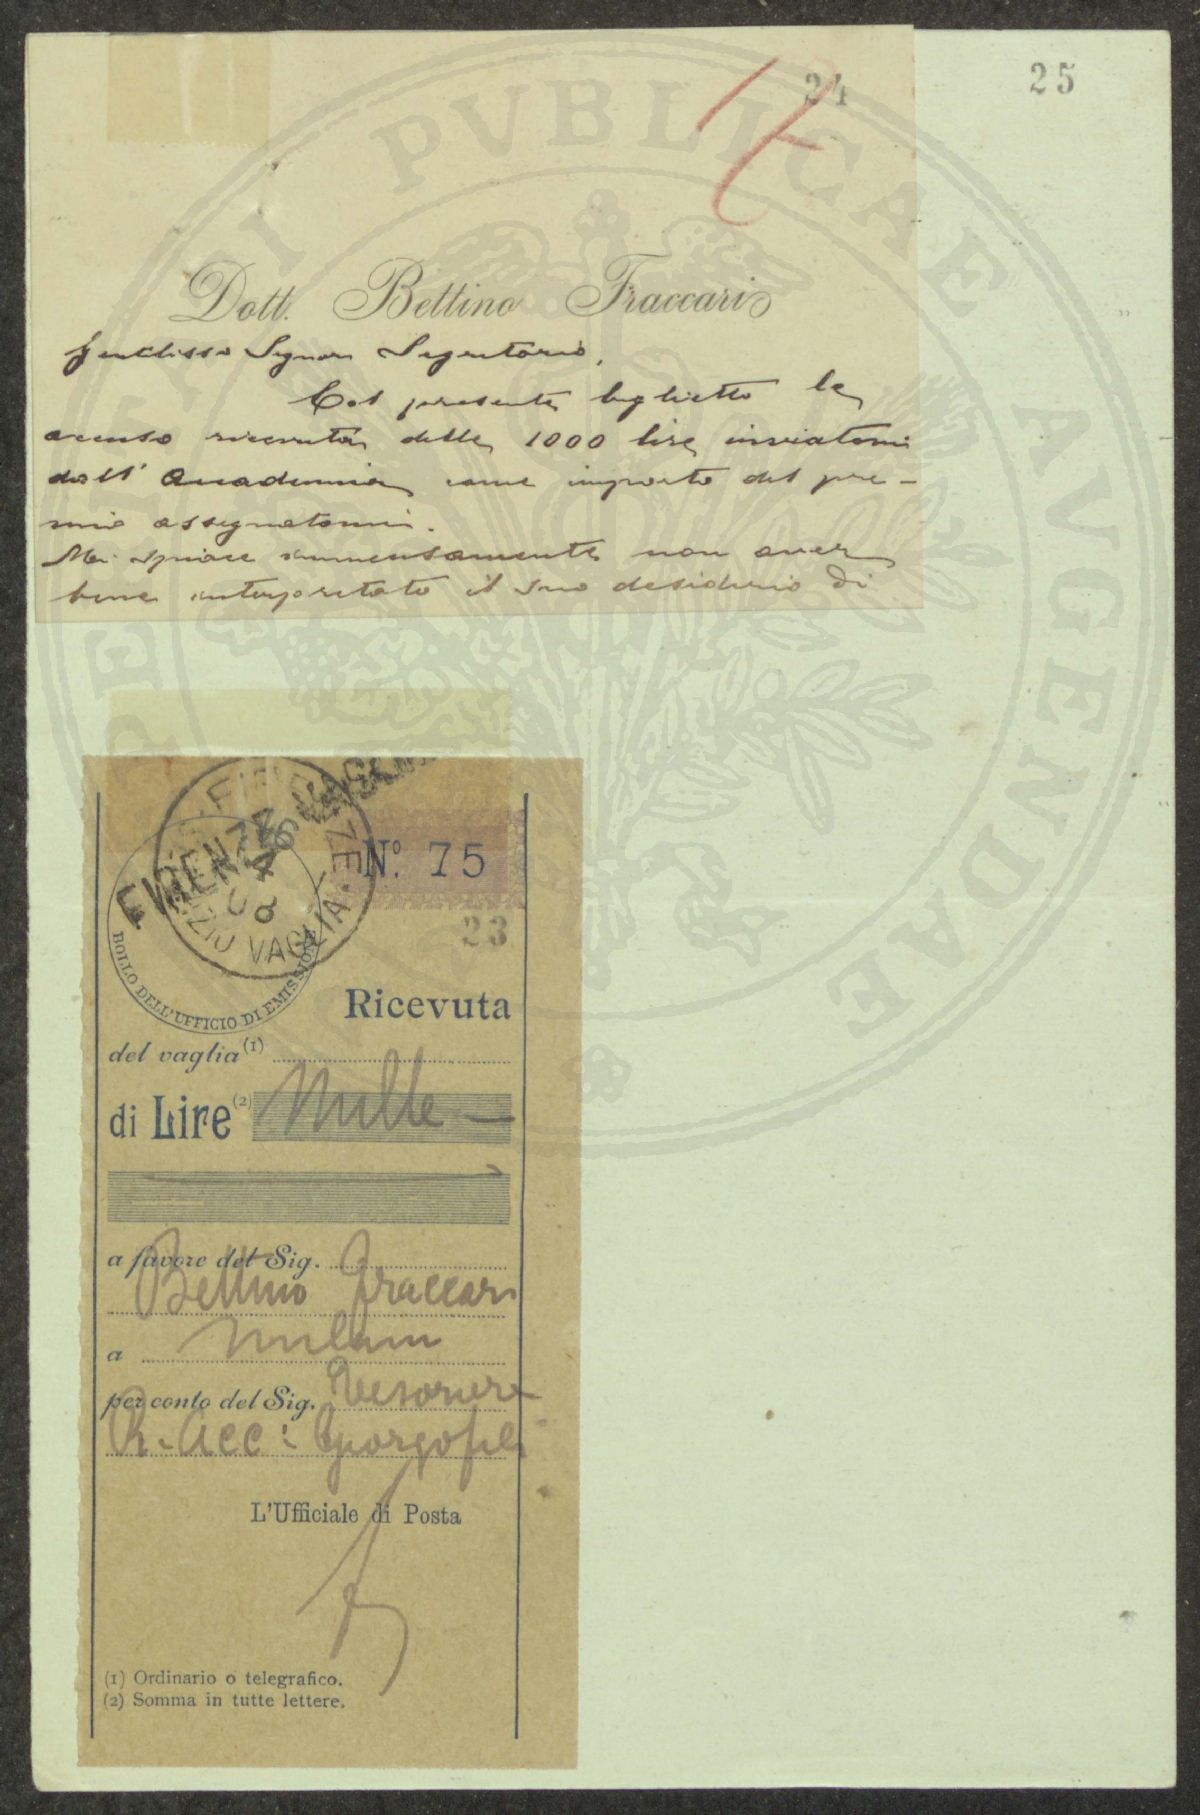 25
24
Dott. Bettino Fraccari
Gentilisso Signor Segretario,
Col presente biglietto le
accuso ricevuta delle 1000 lire inviatemi
dall' Accademia come importo del pre-
mio assegnatomi.
Mi spiace immensamente non aver
bene interpretato il suo desiderio di
FIRENZE
VAGLIA
BOLLO DELL'UFFICIO DI EMISSIONE
No. 75
23
Ricevuta
del vaglia (1)
di Lire (2) Mille —
a favore del Sig.
Bettino Fraccari
a Milano
per conto del Sig. Tesoriere
R. Acc: Georgofili
L'Ufficiale di Posta
(1) Ordinario o telegrafico.
(2) Somma in tutte lettere.
PVBLICAE AVGENDAE